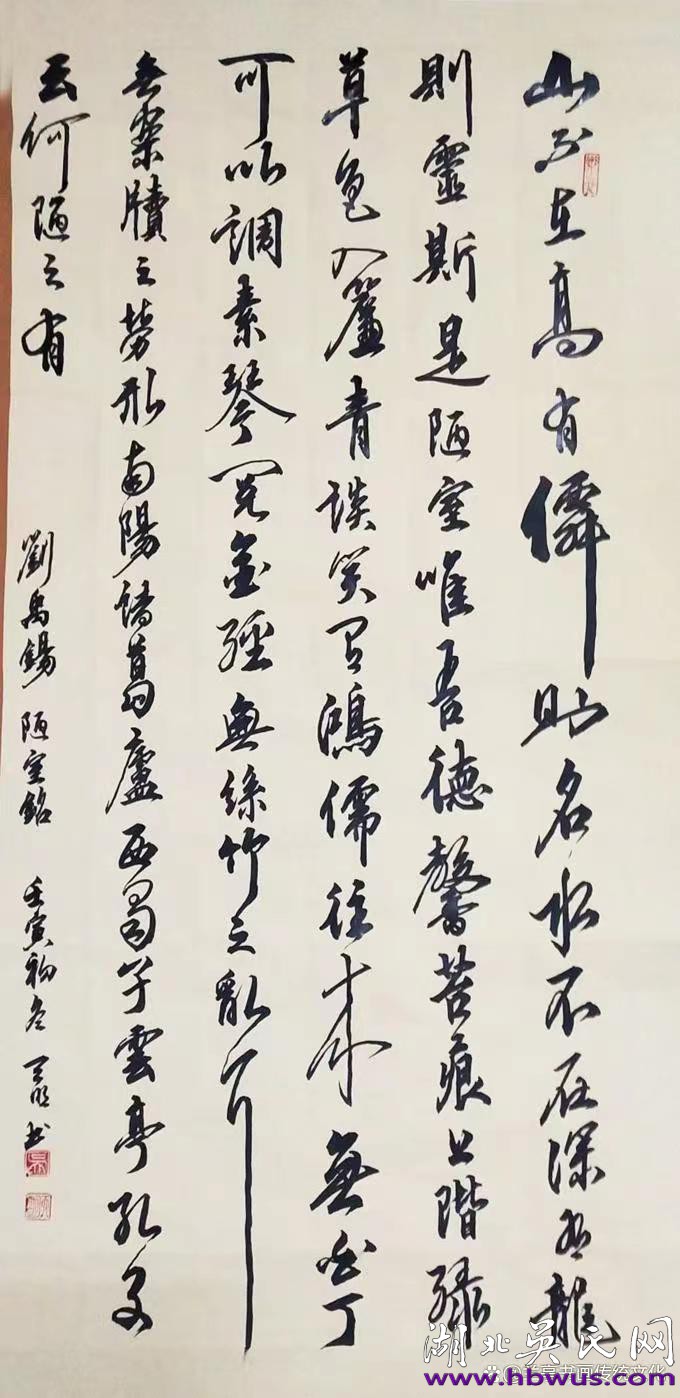 山不在高有僊則名水不在深有龍
則靈斯是陋室唯吾德馨苔痕上階綠
草色入簾青談笑有鴻儒往來無白丁
可以調素琴閱金經無絲竹之亂耳
無案牘之勞形南陽諸葛廬西蜀子雲亭孔子
云何陋之有 劉禹錫 陋室銘 壬寅初冬 书
湖北吳氏网
书画传统文化
www.hbwus.com